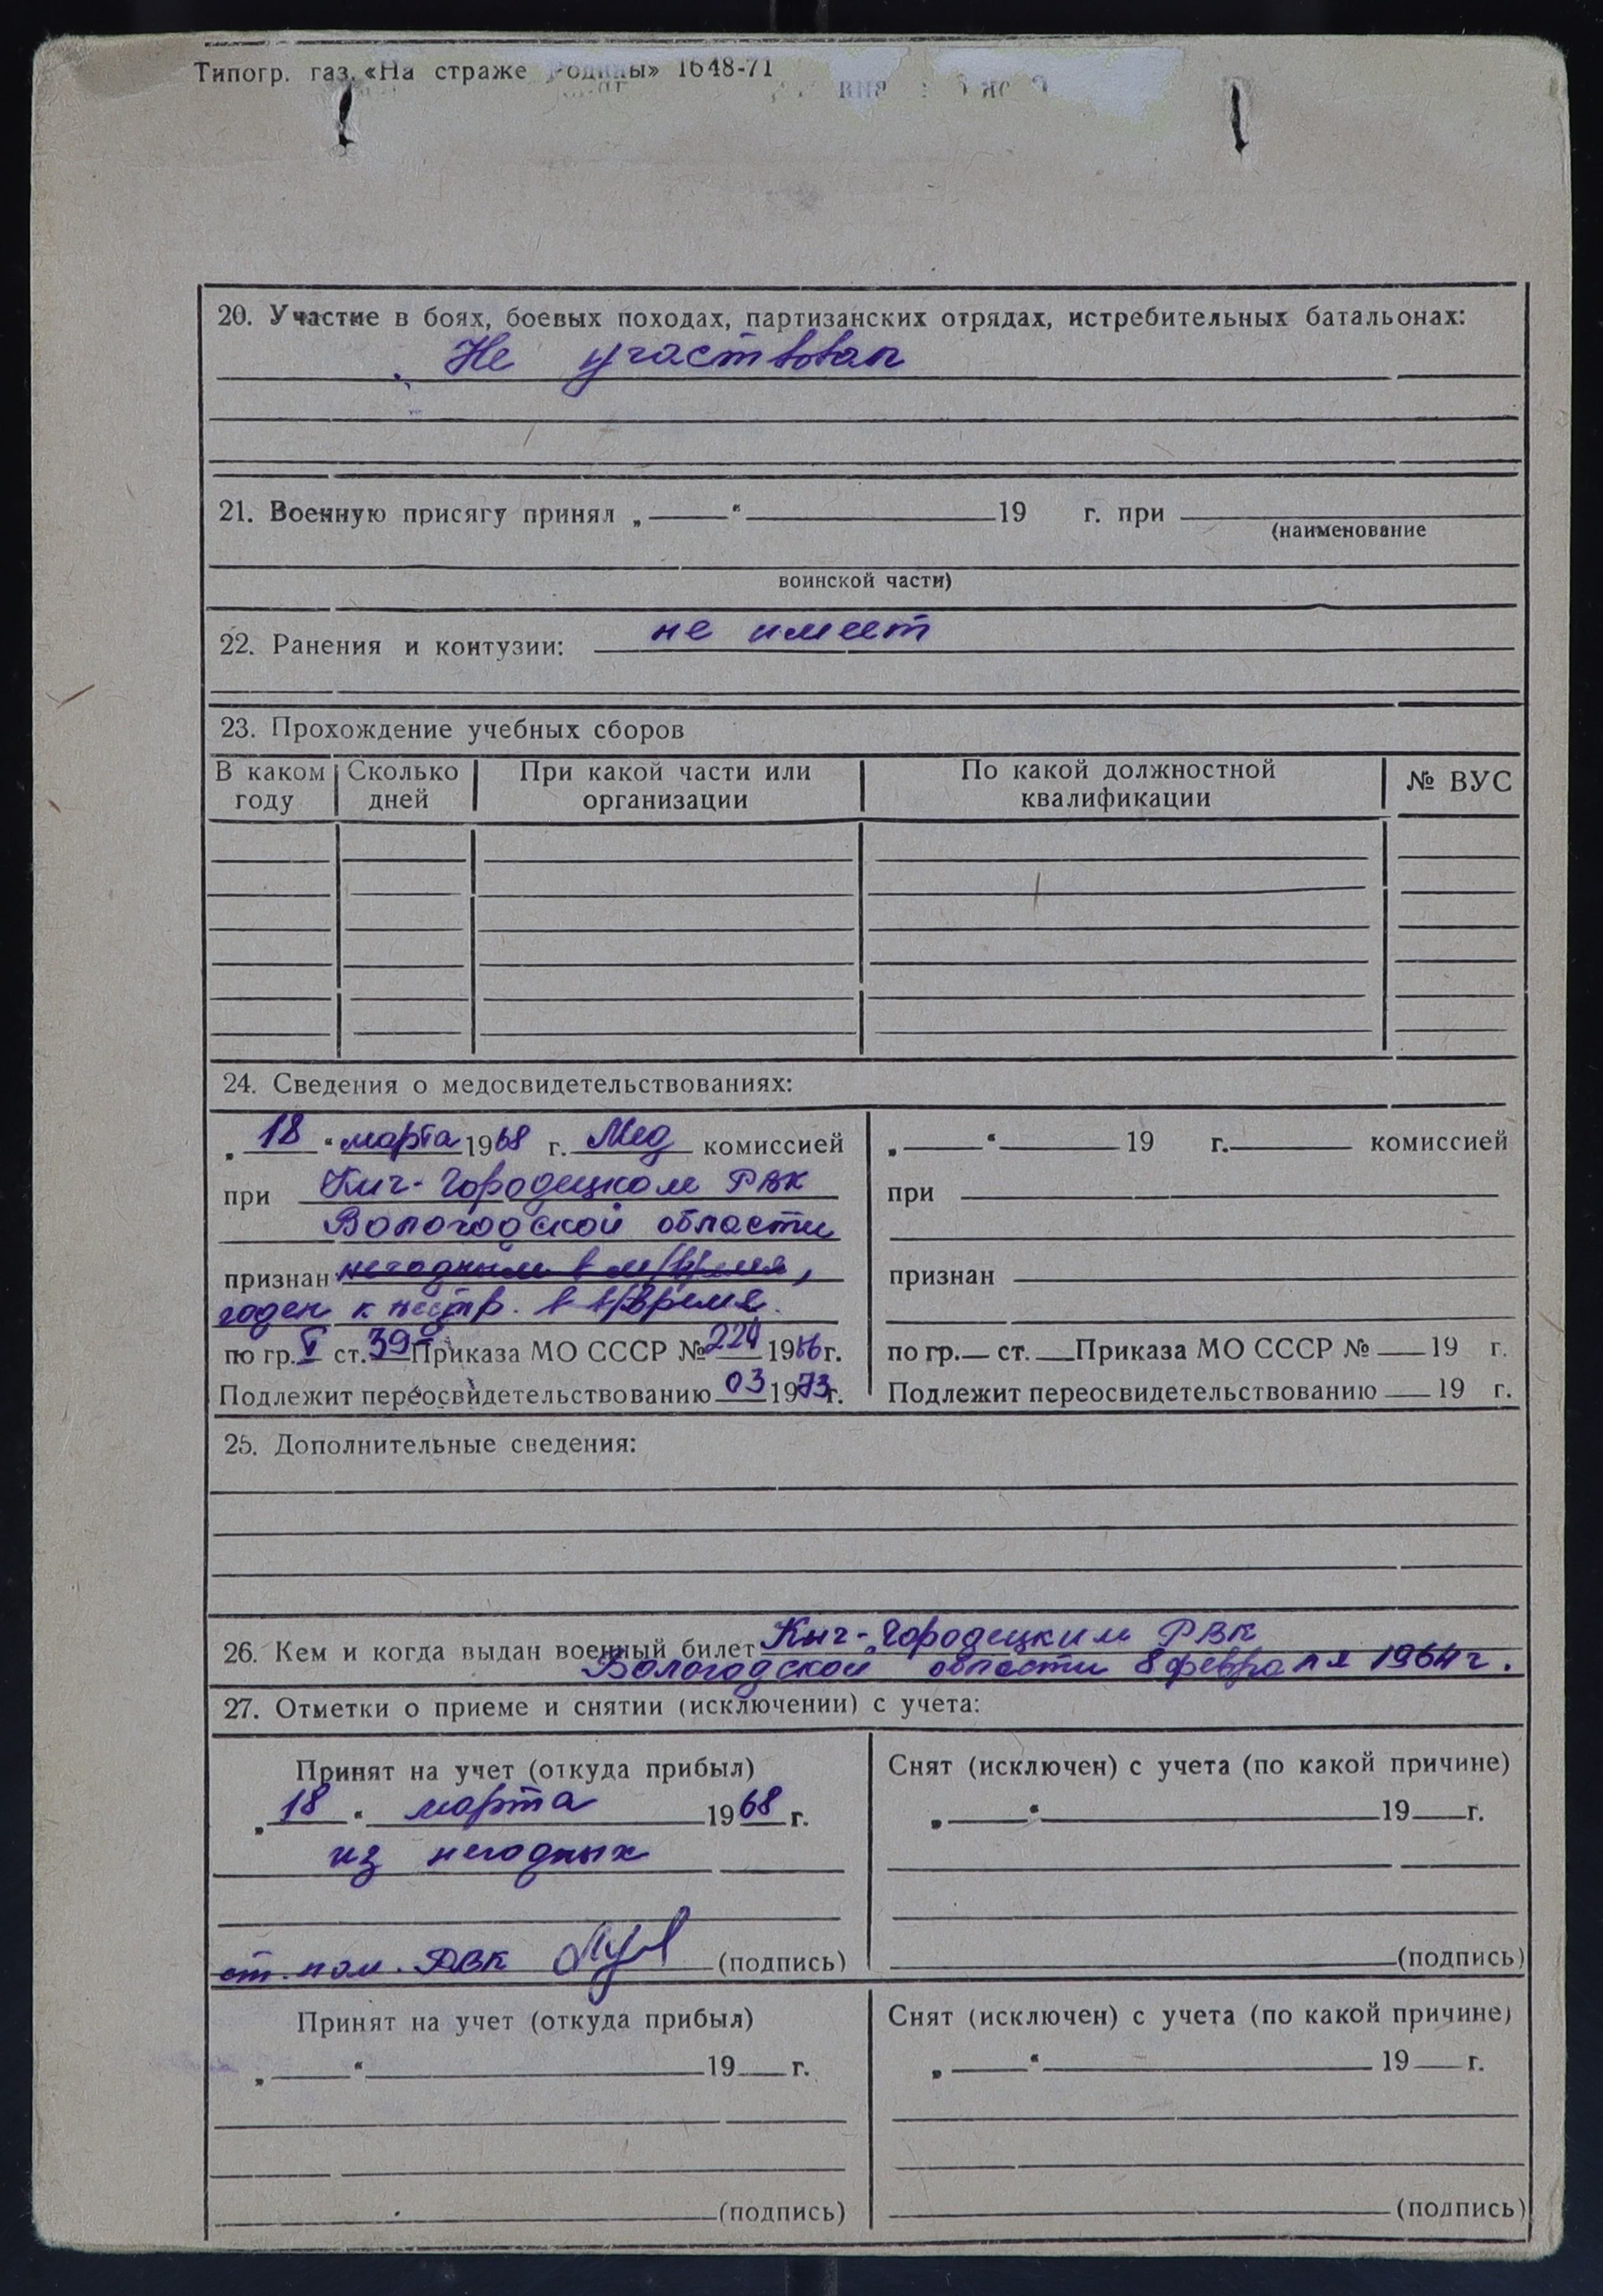 Типогр. газ. «На страже Родины» 1648-71
20. Участие в боях, боевых походах, партизанских отрядах, истребительных батальонах:
Не участвовал
21. Военную присягу принял „ “ 19 г. при
(наименование
воинской части)
22. Ранения и контузии: не имеет
23. Прохождение учебных сборов
В каком году Сколько дней При какой части или организации По какой должностной квалификации № ВУС
24. Сведения о медосвидетельствованиях:
„18“ марта 1968 г. Мед комиссией
при Кич-Городецком РВК
Вологодской области
признан негодным в м/время,
годен к нестр. в в/время.
по гр. V ст. 39 Приказа МО СССР № 1966 г.
Подлежит переосвидетельствованию 03 1973 г.
„ “ 19 г. комиссией
при
признан
по гр. ст. Приказа МО СССР № 19 г.
Подлежит переосвидетельствованию 19 г.
25. Дополнительные сведения:
26. Кем и когда выдан военный билет Кич-Городецким РВК
Вологодской области 8 февраля 1964 г.
27. Отметки о приеме и снятии (исключении) с учета:
Принят на учет (откуда прибыл)
„18“ марта 1968 г.
из негодных
ст. пом. РВК (подпись)
Снят (исключен) с учета (по какой причине)
„ “ 19 г.
(подпись)
Принят на учет (откуда прибыл)
„ “ 19 г.
(подпись)
Снят (исключен) с учета (по какой причине)
„ “ 19 г.
(подпись)